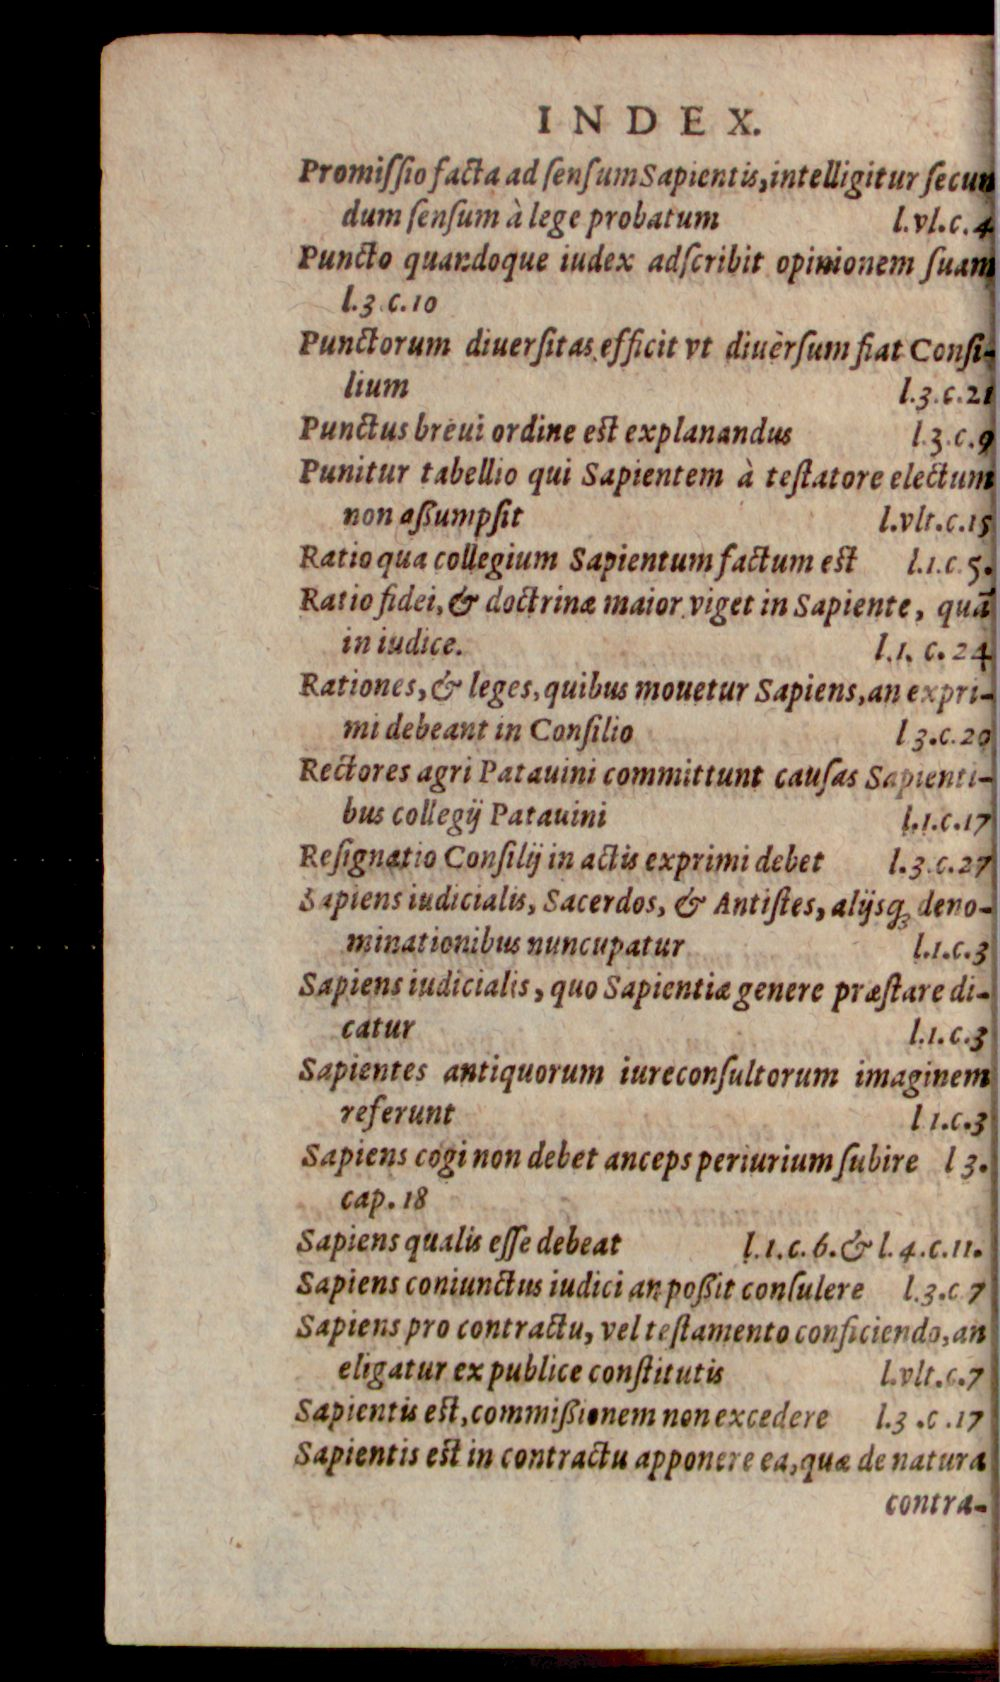 INDEX.
Promiſſio facta ad ſenſum Sapientis, intelligitur ſecun
dum ſenſum à lege probatum l.vl.c.4
Puncto quandoque iudex adſcribit opinionem ſuam
l.3.c.10
Punctorum diuerſitas efficit vt diuèrſum fiat Conſi-
lium l.3.c.21
Punctus breui ordine eſt explanandus l.3.c.9
Punitur tabellio qui Sapientem à teſtatore electum
non aßumpſit l.vlt.c.15
Ratio qua collegium Sapientum factum eſt l.1.c.5.
Ratio fidei, & doctrinæ maior viget in Sapiente, quã
in iudice. l.1. c. 24
Rationes, & leges, quibus mouetur Sapiens, an expri-
mi debeant in Conſilio l 3.c.20
Rectores agri Patauini committunt cauſas Sapienti-
bus collegij Patauini l.1.c.17
Reſignatio Conſilij in actis exprimi debet l.3.c.27
Sapiens iudicialis, Sacerdos, & Antiſtes, alijsq; deno-
minationibus nuncupatur l.1.c.3
Sapiens iudicialis, quo Sapientiæ genere præſtare di-
catur l.1.c.3
Sapientes antiquorum iureconſultorum imaginem
referunt l 1.c.3
Sapiens cogi non debet anceps periurium ſubire l 3.
cap. 18
Sapiens qualis eſſe debeat l.1.c.6.& l.4.c.11.
Sapiens coniunctus iudici an poßit conſulere l.3.c 7
Sapiens pro contractu, vel teſtamento conficiendo, an
eligatur ex publice conſtitutis l.vlt.c.7
Sapientis eſt, commißionem non excedere l.3 .c .17
Sapientis eſt in contractu apponere ea, quæ de natura
contra-